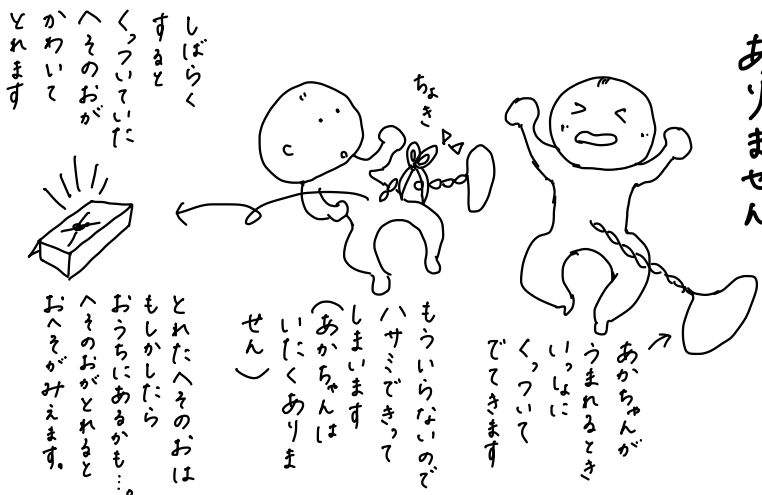 ありません
あかちゃんが
うまれるとき
いっしょに
くっついて
でてきます
ちょき
もういらないので
ハサミできって
しまいます
(あかちゃんは
いたくありま
せん)
しばらく
すると
くっついていた
へそのおが
かわいて
とれます
とれたへそのおは
もしかしたら
おうちにあるかも…。
へそのおがとれると
おへそがみえます。